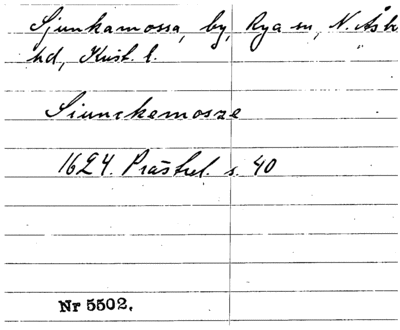 Sjunkamossa, by, Rya sn, N. Åsb
hd, Krist. l.
Siunckemosze
1624. Prästrel. s. 40
Nr 5502.